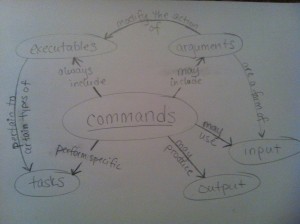 modify the action
of
executables
arguments
always
include
may
include
are a form of
pertain to
certain types of
commands
perform specific
may
produce
may
use
input
tasks
output